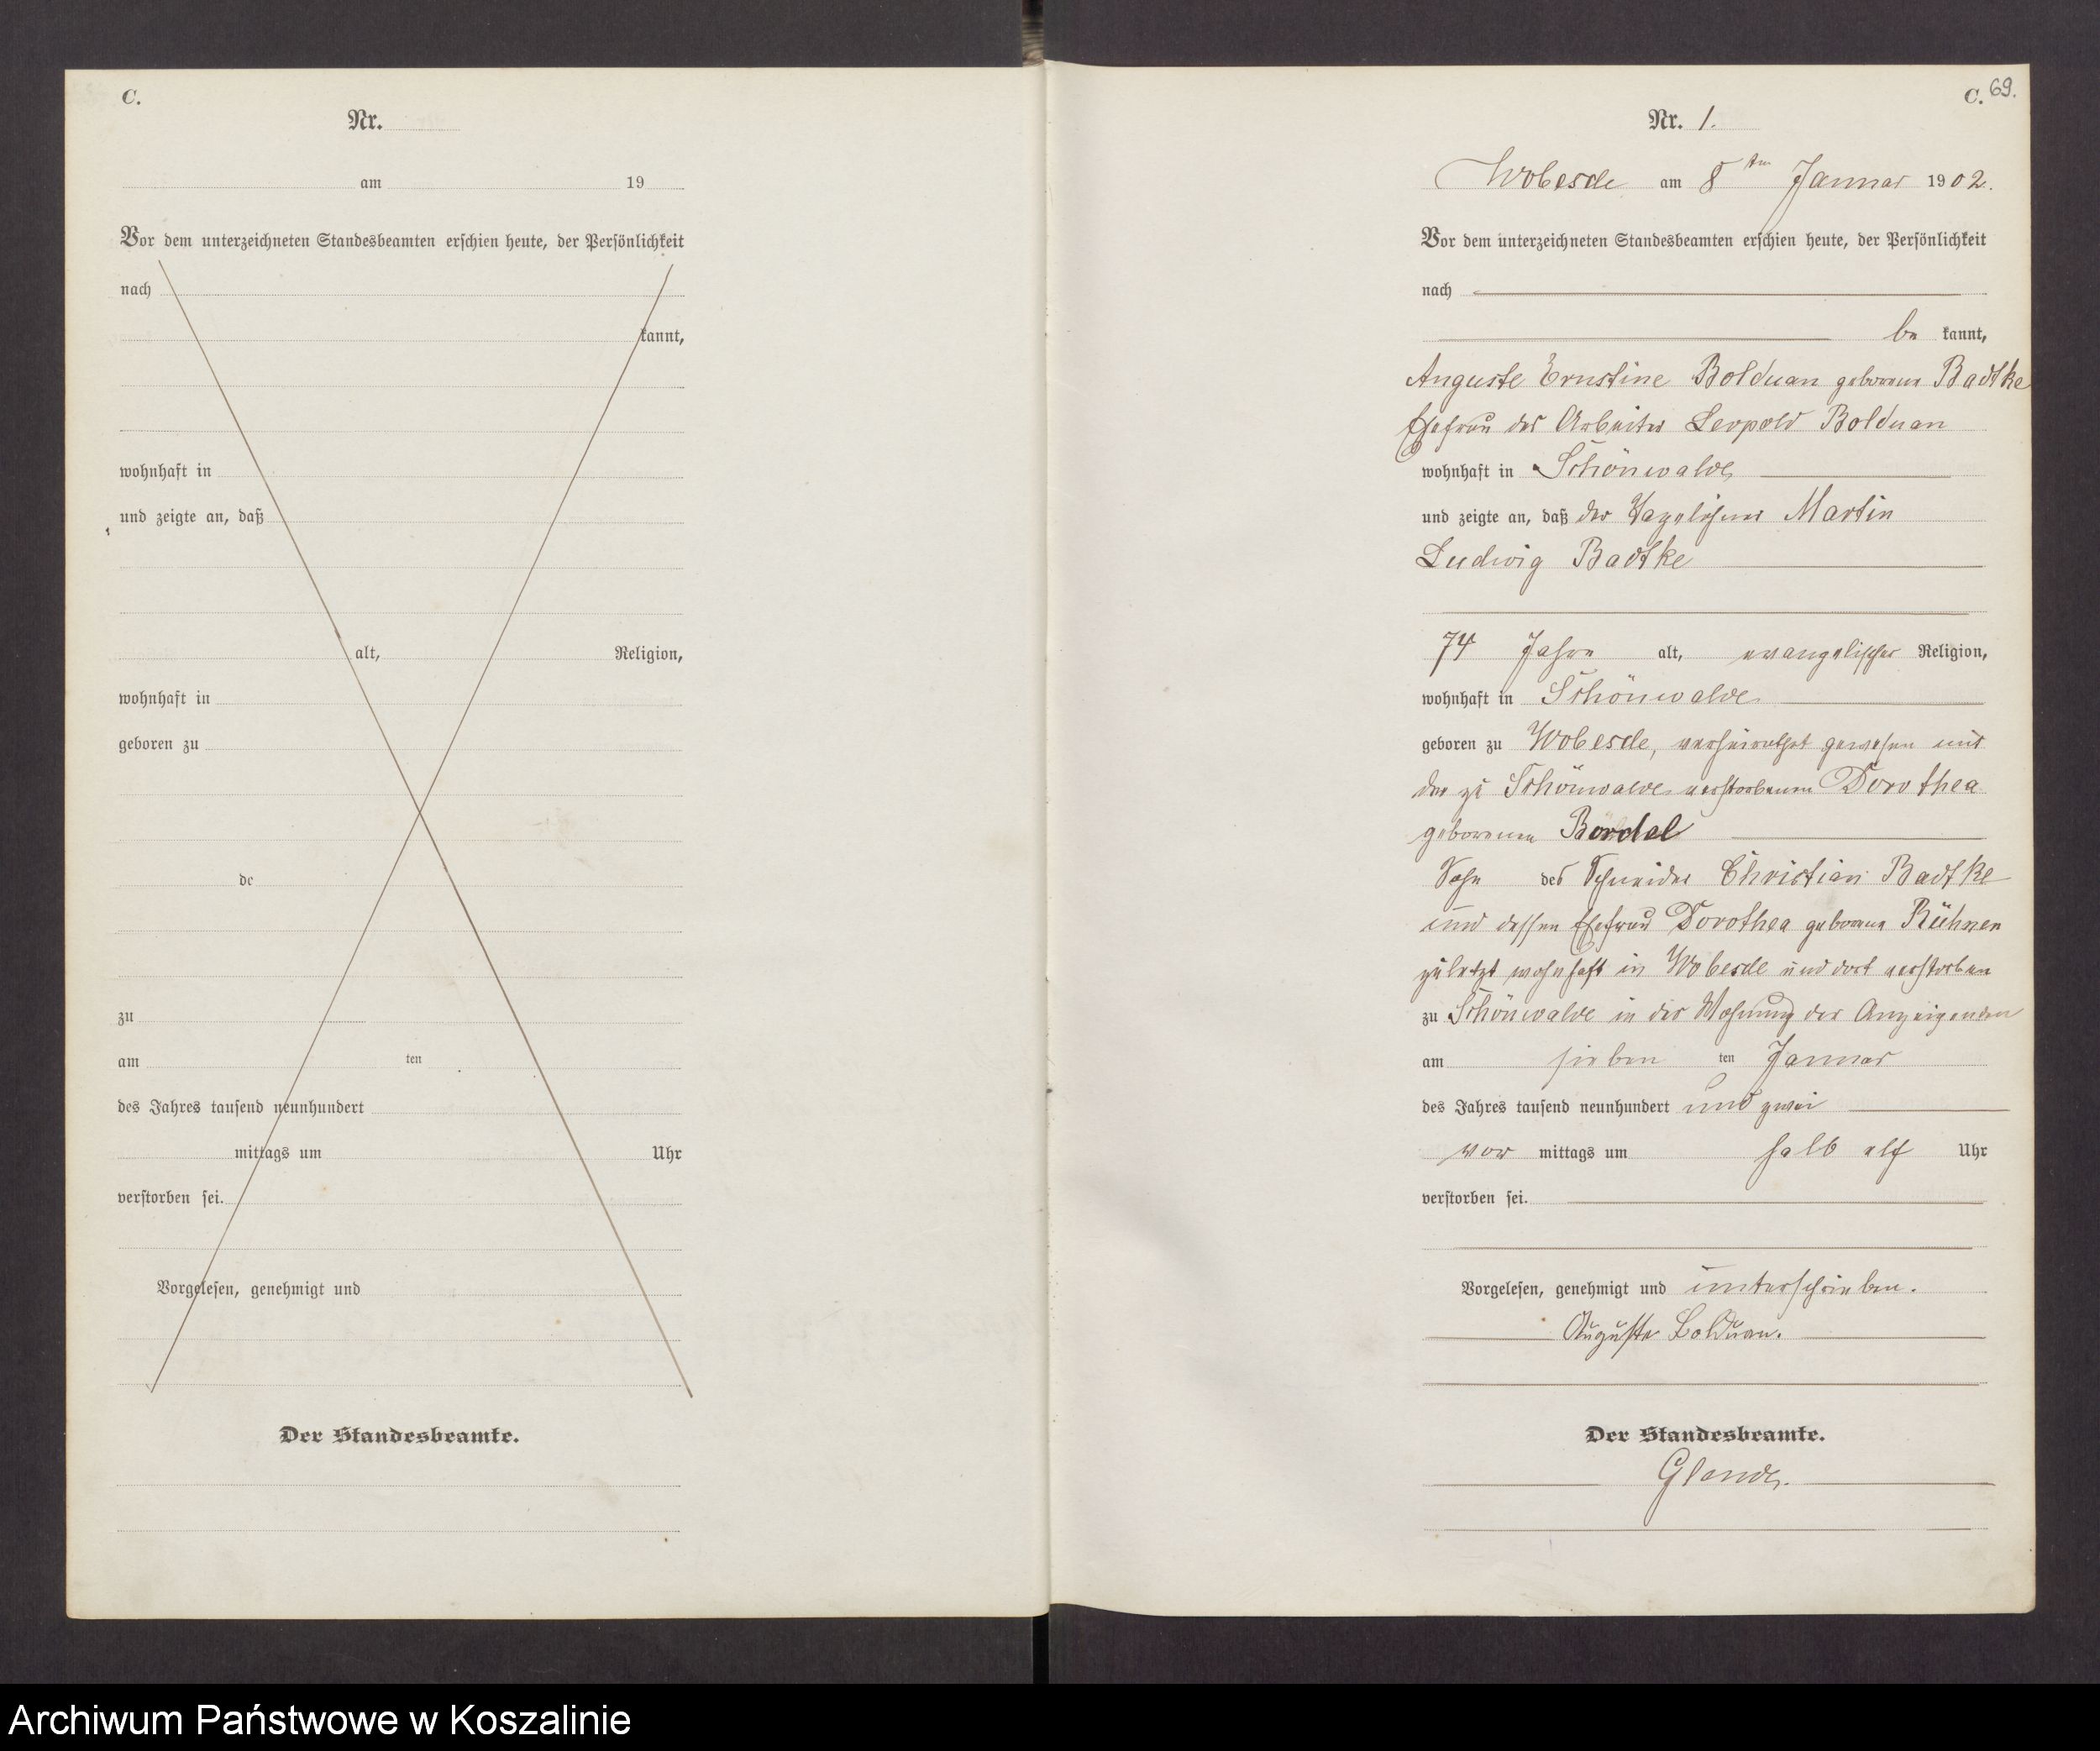 C.
Nr.
am 19
Vor dem unterzeichneten Standesbeamten erschien heute, der Persönlichkeit
nach
kannt,
wohnhaft in
und zeigte an, daß
alt, Religion,
wohnhaft in
geboren zu
de
zu
am ten
des Jahres tausend neunhundert
mittags um Uhr
verstorben sei.
Vorgelesen, genehmigt und
Der Standesbeamte.
C. 69.
Nr. 1.
Wobesde am 8ten Januar 1902.
Vor dem unterzeichneten Standesbeamten erschien heute, der Persönlichkeit
nach
be kannt,
Auguste Ernstine Bolduan geborene Badtke
Ehefrau des Arbeiters Leopold Bolduan
wohnhaft in Schönwalde
und zeigte an, daß der Tagelöhner Martin
Ludwig Badtke
74 Jahre alt, evangelischer Religion,
wohnhaft in Schönwalde
geboren zu Wobesde, verheirathet gewesen mit
der zu Schönwalde verstorbenen Dorothea
geborenen Bordel
Sohn des Schneider Christian Badtke
und dessen Ehefrau Dorothea geborene
zuletzt wohnhaft in Wobesde und dort verstorben
zu Schönwalde in der Wohnung der Anzeigenden
am sieben ten Januar
des Jahres tausend neunhundert und zwei
vor mittags um halb elf Uhr
verstorben sei.
Vorgelesen, genehmigt und unterschrieben.
Auguste Bolduan.
Der Standesbeamte.
Archiwum Państwowe w Koszalinie